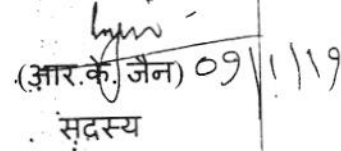 (आर.के. जैन) 09/1/19
सदस्य